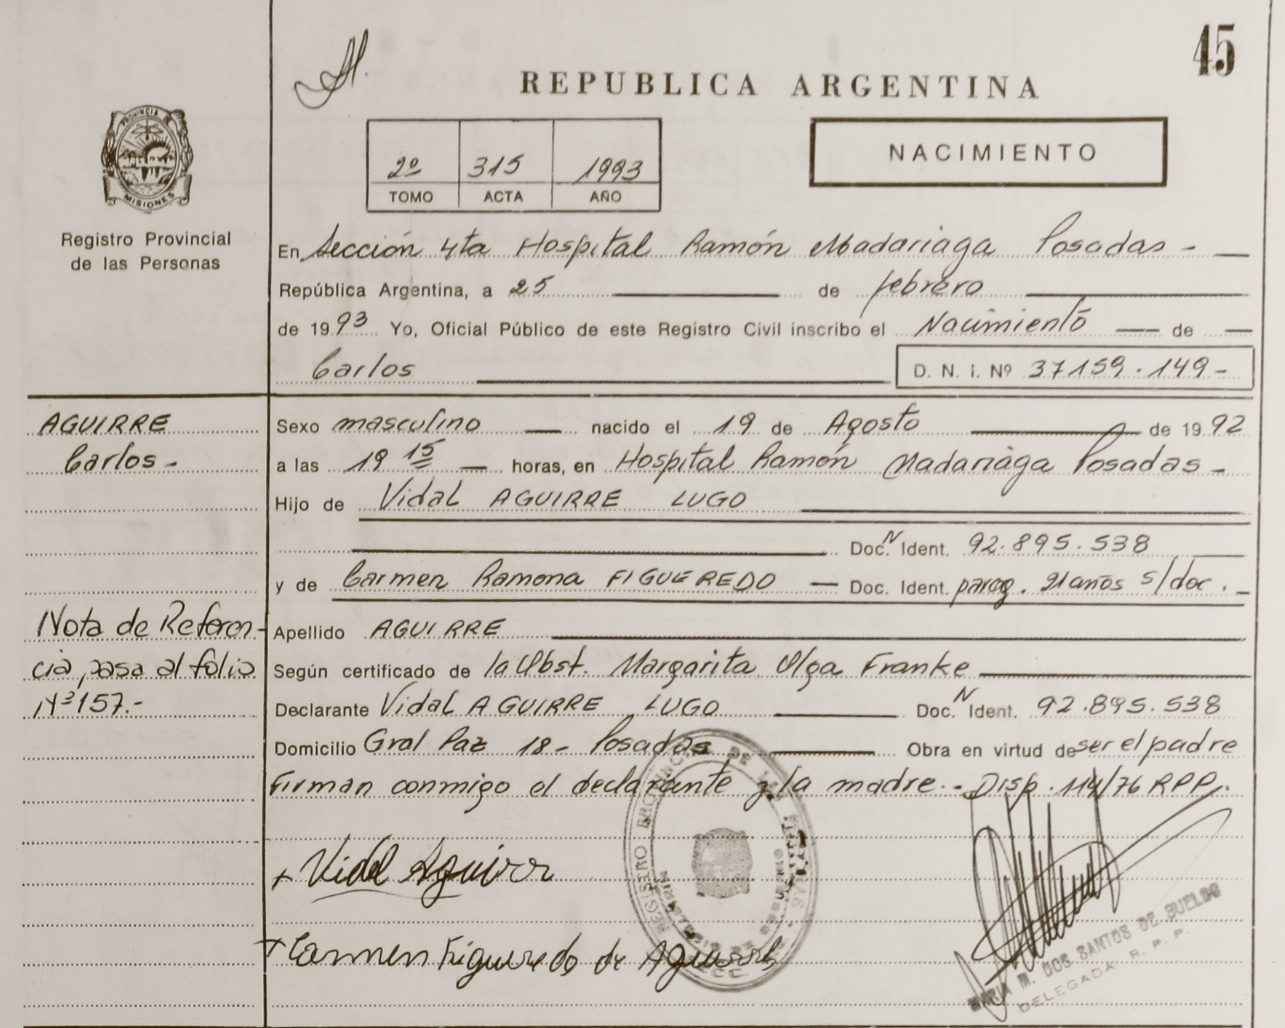 45
REPUBLICA ARGENTINA
PROVINCIA DE
MISIONES
Registro Provincial
de las Personas
2º 315 1993
TOMO ACTA AÑO
NACIMIENTO
En Sección 4ta Hospital Ramón Madariaga Posadas -
República Argentina, a 25 de febrero
de 1993 Yo, Oficial Público de este Registro Civil inscribo el Nacimiento de
Carlos D. N. I. Nº 37159.149-
AGUIRRE
Carlos -
Sexo masculino nacido el 19 de Agosto de 1992
a las 19 15 horas, en Hospital Ramón Madariaga Posadas -
Hijo de Vidal AGUIRRE LUGO
Doc. N Ident. 92.895.538
y de Carmen Ramona FIGUEREDO — Doc. Ident. parag. 21 años s/doc. -
Nota de Referen-
cia, pasa al folio
Nº 157.-
Apellido AGUIRRE
Según certificado de la Obst. Margarita Olga Franke
Declarante Vidal AGUIRRE LUGO Doc. N Ident. 92.895.538
Domicilio Gral Paz 18- Posadas Obra en virtud de ser el padre
Firman conmigo el declarante y la madre.- Disp. 114/76 RPP.
+ Vidal Aguirre
+ Carmen Figueredo de Aguirre
MARIA M. DOS SANTOS DE BUELDO
DELEGADA R. P. P.